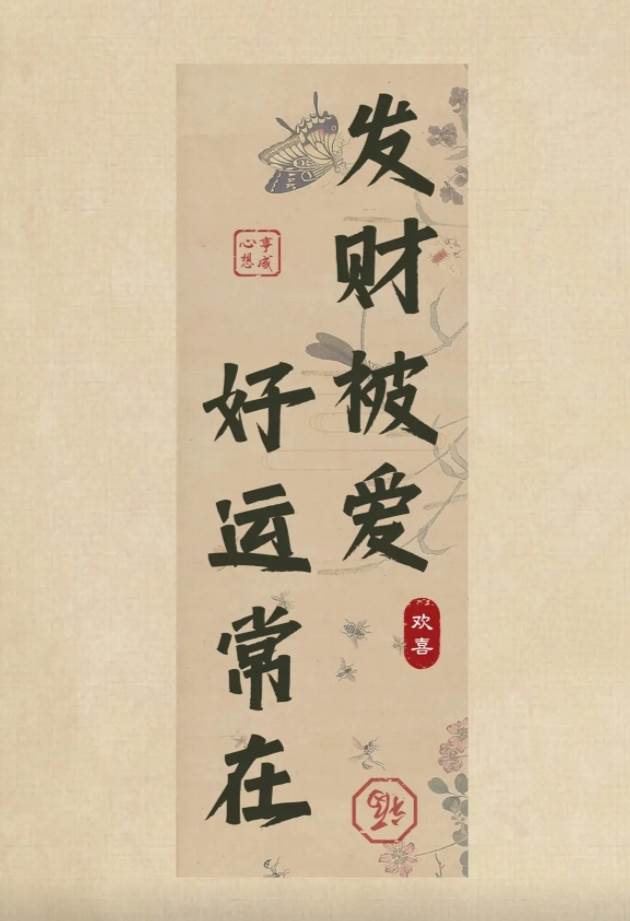 发财被爱
好运常在
心想事成
欢喜
福